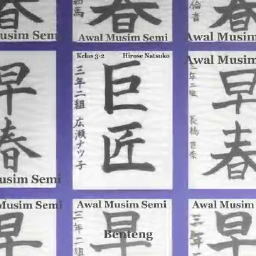 春
春
春
Musim Semi
Awal Musim Semi
Awal Musim
早春
usim Semi
Kelas 3-2
Hirose Natsuko
巨匠
三年二組 広瀬ナツ子
Awal Musim
早春
三年二組
早
Musim Semi
Awal Musim Semi
早
三年二組
Benteng
Awal Musim
早